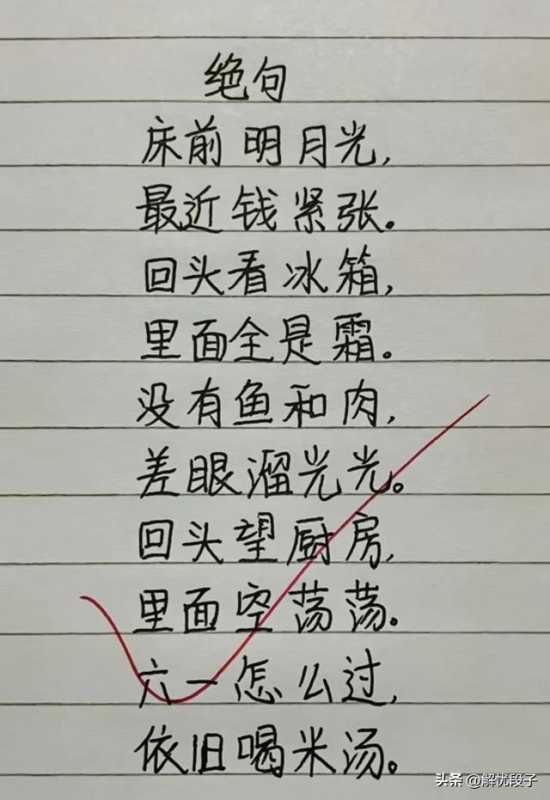 绝句
床前明月光,
最近钱紧张。
回头看冰箱,
里面全是霜。
没有鱼和肉,
差眼溜光光。
回头望厨房,
里面空荡荡。
六一怎么过,
依旧喝米汤。
头条 @解忧段子